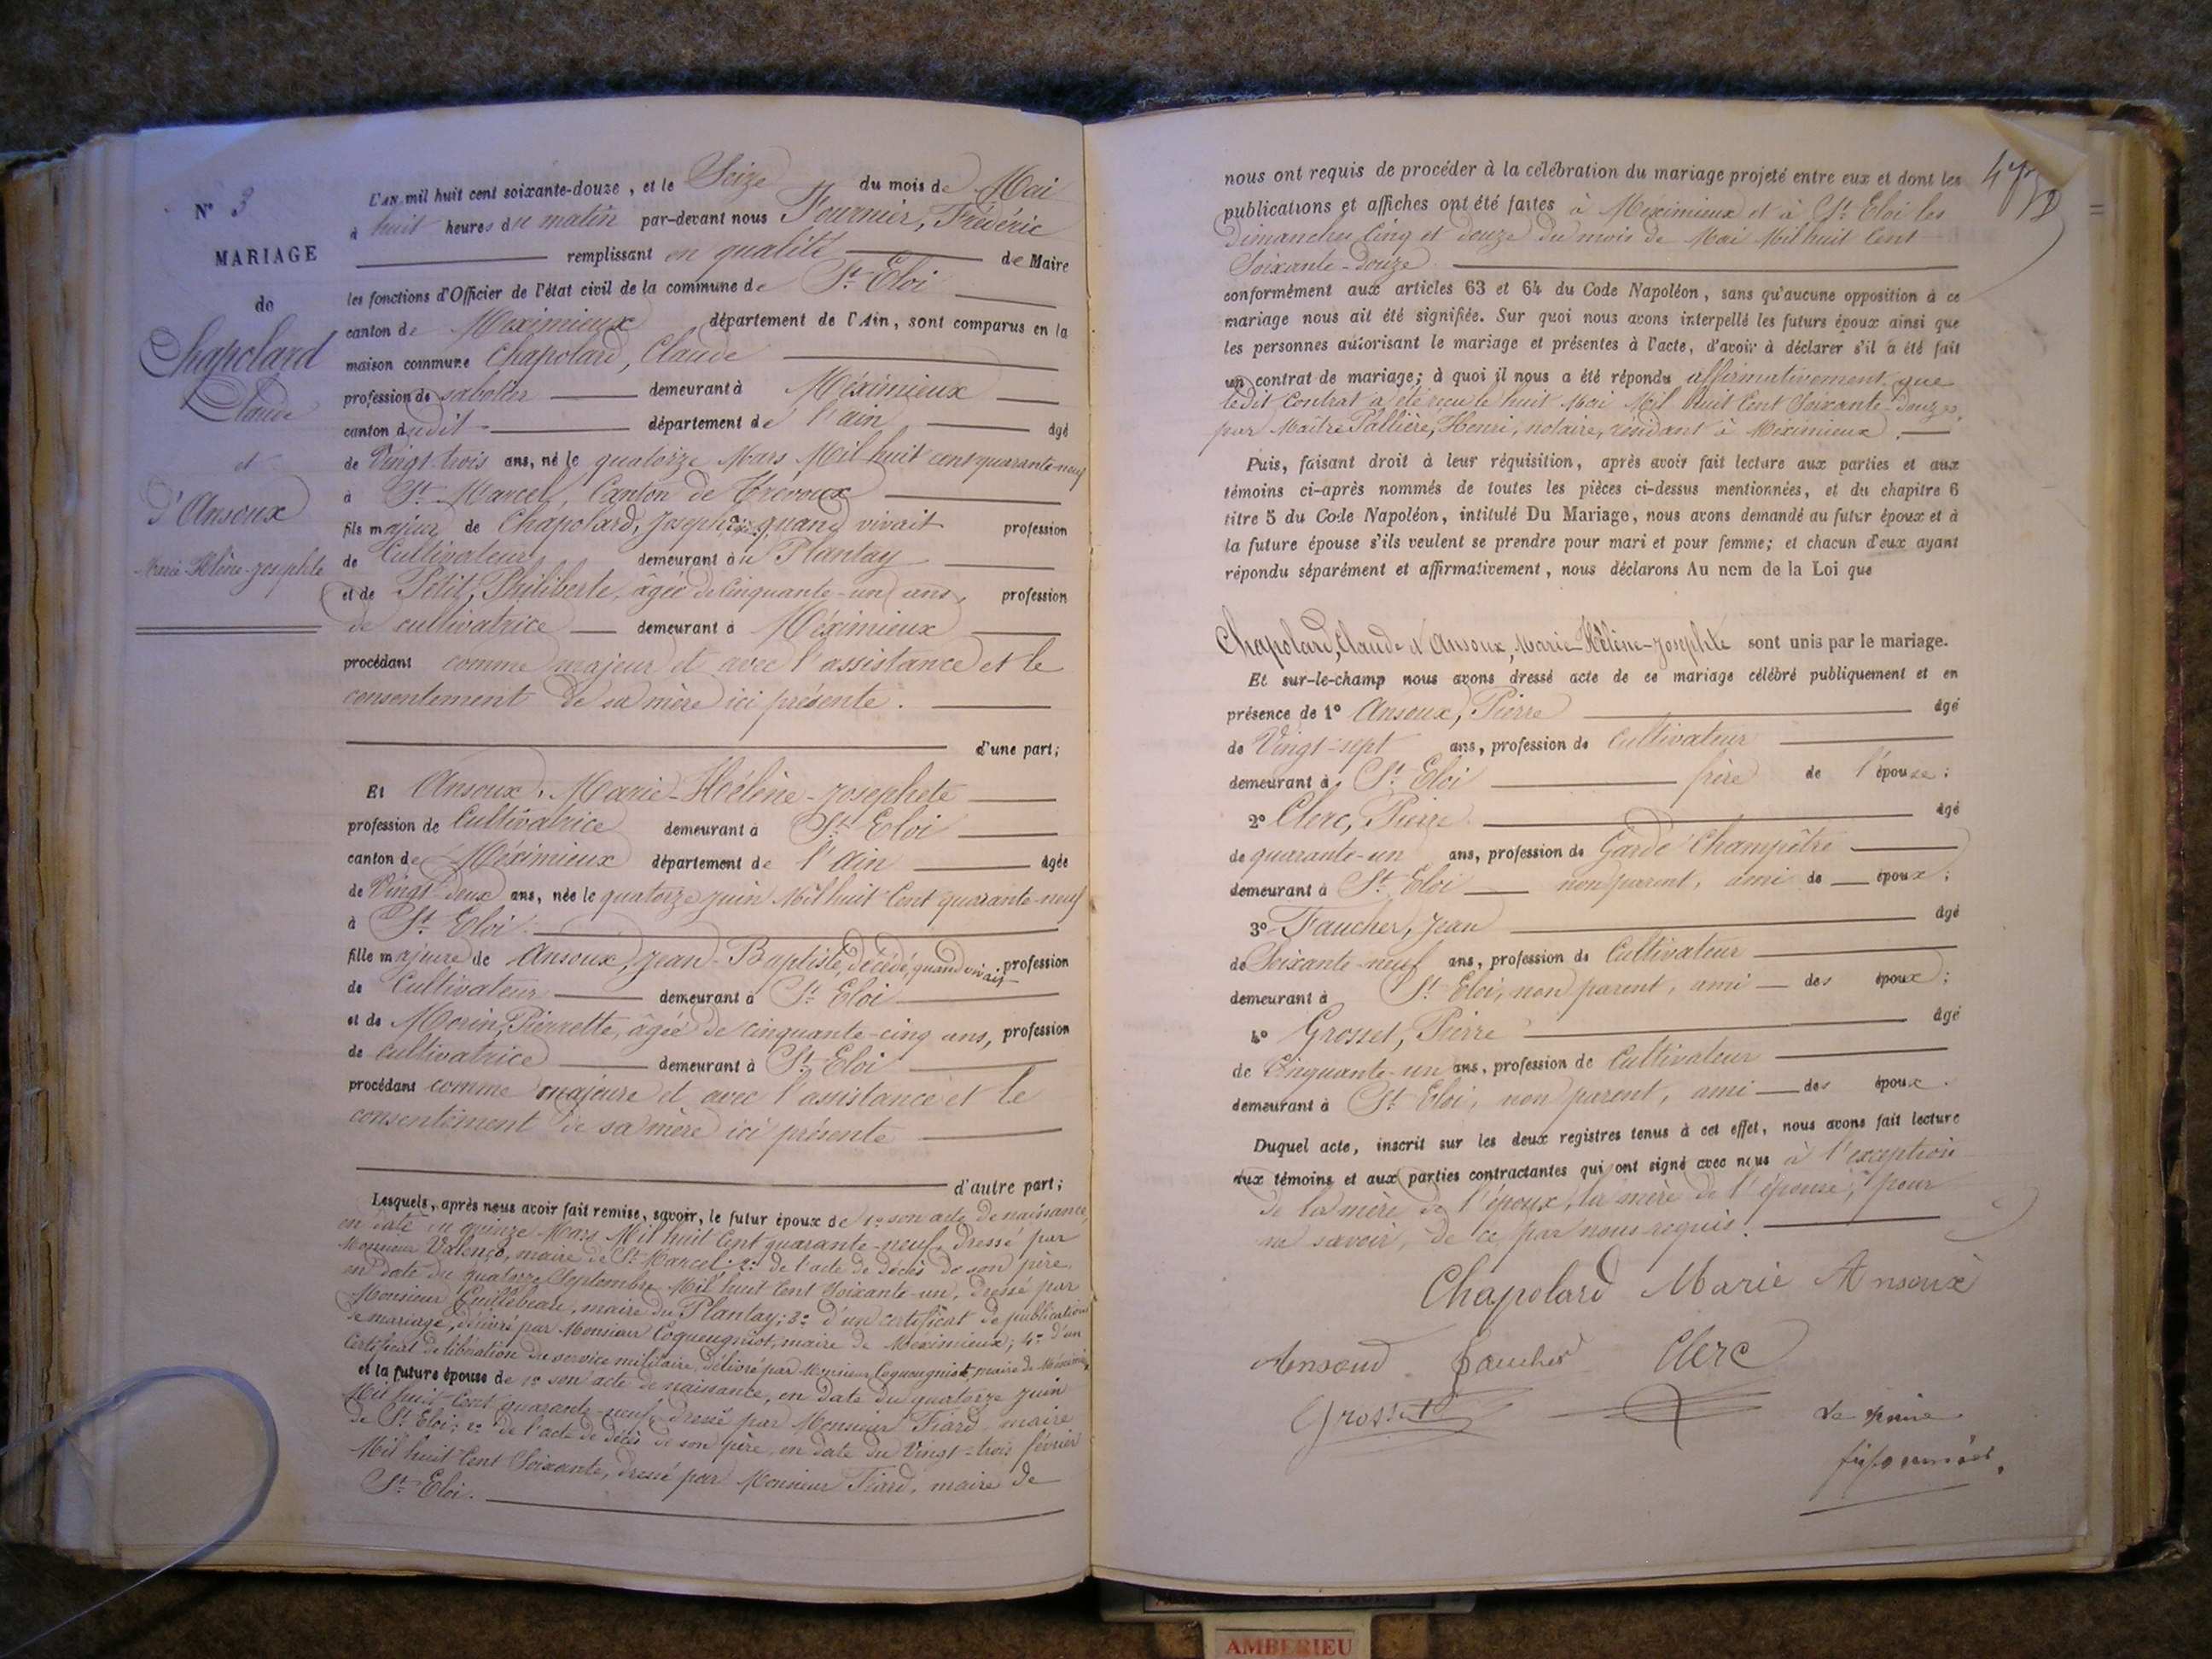 N° 3
MARIAGE
de
Chapolard
Claude
et
d'Ansoux
Marie-Hélène-Josephte
L'AN mil huit cent soixante-douze, et le Seize du mois de Mai
à huit heures du matin par-devant nous Fournier, Frédéric
remplissant en qualité de Maire
les fonctions d'Officier de l'état civil de la commune de St. Eloi
canton de Meximieux département de l'Ain, sont comparus en la
maison commune Chapolard, Claude
profession de sabotier demeurant à Méximieux
canton dudit département de l'ain âgé
de Vingt trois ans, né le quatorze Mars Mil huit cent quarante-neuf
à St. Marcel, Canton de Trévoux
fils majeur de Chapolard, Joseph, quand vivait profession
de Cultivateur demeurant au Plantay
et de Petit, Philiberte, âgée de Cinquante-un ans, profession
de cultivatrice demeurant à Méximieux
procédant comme majeur et avec l'assistance et le
consentement de sa mère ici présente.
d'une part;
Et Ansoux, Marie-Hélène-Josephete
profession de Cultivatrice demeurant à St. Eloi
canton de Méximieux département de l'Ain âgée
de Vingt-deux ans, née le quatorze juin Mil huit Cent quarante-neuf
à St. Eloi
fille majeure de Ansoux, Jean-Baptiste, décédé, quand vivait profession
de Cultivateur demeurant à St. Eloi
et de Morin, Pierrette, âgée de cinquante-cinq ans, profession
de cultivatrice demeurant à St. Eloi
procédant comme majeure et avec l'assistance et le
consentement de sa mère ici présente
d'autre part;
Lesquels, après nous avoir fait remise, savoir, le futur époux de 1° son acte de naissance,
en date du quinze Mars Mil huit Cent quarante-neuf, dressé par
Monsieur Valenço, maire de St. Marcel; 2° de l'acte de décès de son père,
en date du quatorze Septembre Mil huit Cent Soixante-un, dressé par
Monsieur Guillebeau, maire du Plantay; 3° d'un certificat de publication
de mariage, délivré par Monsieur Coqueugniot, maire de Méximieux; 4° d'un
Certificat de libération du service militaire, délivré par Monsieur Coqueugniot, maire de Méximieux
et la future épouse de 1° son acte de naissance, en date du quatorze juin
Mil huit Cent quarante-neuf, dressé par Monsieur Fiard, maire
de St. Eloi; 2° de l'acte de décès de son père, en date du Vingt-trois février
Mil huit Cent Soixante, dressé par Monsieur Fiard, maire de
St. Eloi.
nous ont requis de procéder à la célébration du mariage projeté entre eux et dont les
publications et affiches ont été faites à Meximieux et à St. Eloi les
Dimanches Cinq et douze du mois de Mai Mil huit Cent
Soixante-douze
conformément aux articles 63 et 64 du Code Napoléon, sans qu'aucune opposition à ce
mariage nous ait été signifiée. Sur quoi nous avons interpellé les futurs époux ainsi que
les personnes autorisant le mariage et présentes à l'acte, d'avoir à déclarer s'il a été fait
un contrat de mariage; à quoi il nous a été répondu affirmativement que
ledit Contrat a été reçu le huit Mai Mil huit Cent Soixante-douze,
par Maître Pallière, Henri, notaire, résidant à Méximieux.
Puis, faisant droit à leur réquisition, après avoir fait lecture aux parties et aux
témoins ci-après nommés de toutes les pièces ci-dessus mentionnées, et du chapitre 6
titre 5 du Code Napoléon, intitulé Du Mariage, nous avons demandé au futur époux et à
la future épouse s'ils veulent se prendre pour mari et pour femme; et chacun d'eux ayant
répondu séparément et affirmativement, nous déclarons Au nom de la Loi que
Chapolard, Claude et Ansoux, Marie-Hélène-Josephte sont unis par le mariage.
Et sur-le-champ nous avons dressé acte de ce mariage célébré publiquement et en
présence de 1° Ansoux, Pierre âgé
de Vingt-sept ans, profession de Cultivateur
demeurant à St. Eloi frère de l'épouse;
2° Clerc, Pierre âgé
de quarante-un ans, profession de Garde Champêtre
demeurant à St. Eloi non parent, ami de époux;
3° Faucher, Jean âgé
de Soixante-neuf ans, profession de Cultivateur
demeurant à St. Eloi, non parent, ami des époux;
4° Grosset, Pierre âgé
de Cinquante-un ans, profession de Cultivateur
demeurant à St. Eloi, non parent, ami des époux.
Duquel acte, inscrit sur les deux registres tenus à cet effet, nous avons fait lecture
aux témoins et aux parties contractantes qui ont signé avec nous à l'exception
de la mère de l'époux, la mère de l'épouse, pour
ne savoir, de ce par nous requis.
Chapolard Marie Ansoux
Ansoud Faucher Clerc
Grosset
Le maire
fournier
AMBERIEU